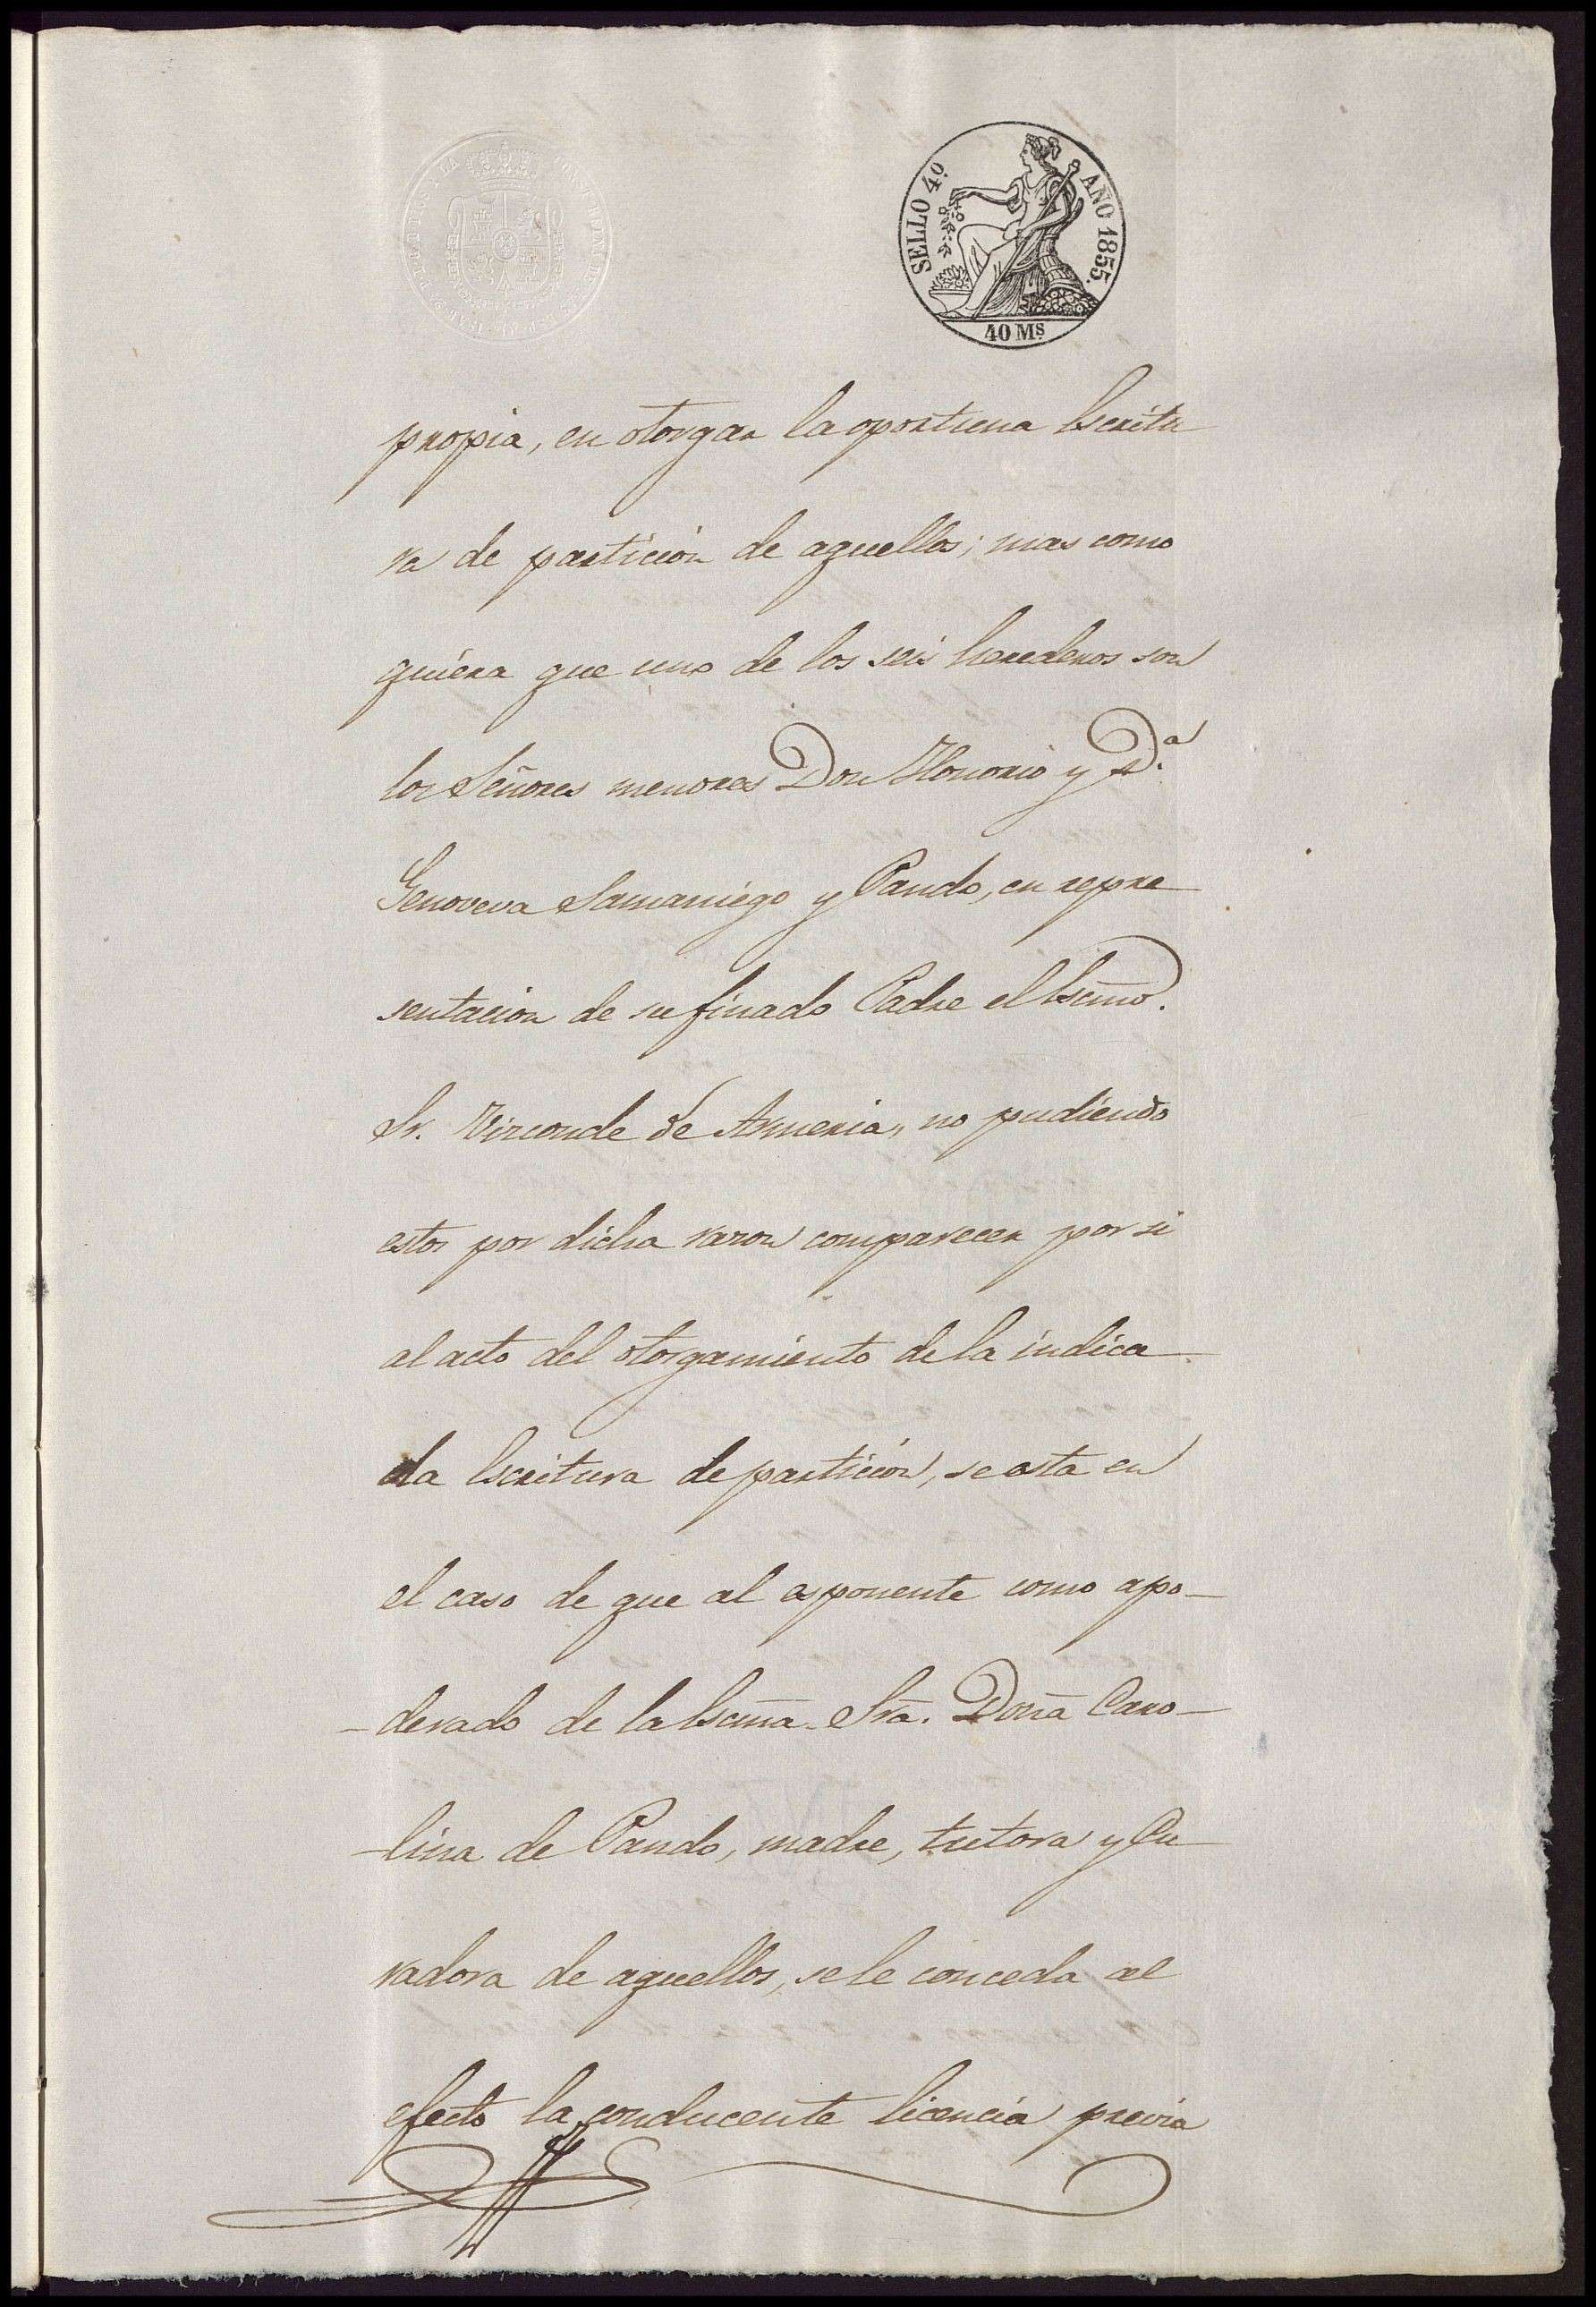 SELLO 4º AÑO 1855.
40 Mˢ
propia, en otorgar la oportuna Escritu
ra de partición de aquellos; mas como
quiera que uno de los seis herederos son
los Señores menores Don Honorio y D.ª
Genoveva Samaniego y Pando, en repre
sentacion de su finado Padre el Escmo.
Sr. Vizconde de Armeria, no pudiendo
estos por dicha razon comparecer por si
al acto del otorgamiento de la indica
da Escritura de partición, se esta en
el caso de que al esponente como apo-
-derado de la Escma. Sra. Doña Caro-
-lina de Pando, madre, tutora y Cu
radora de aquellos, se le conceda al
efecto la conducente licencia previa